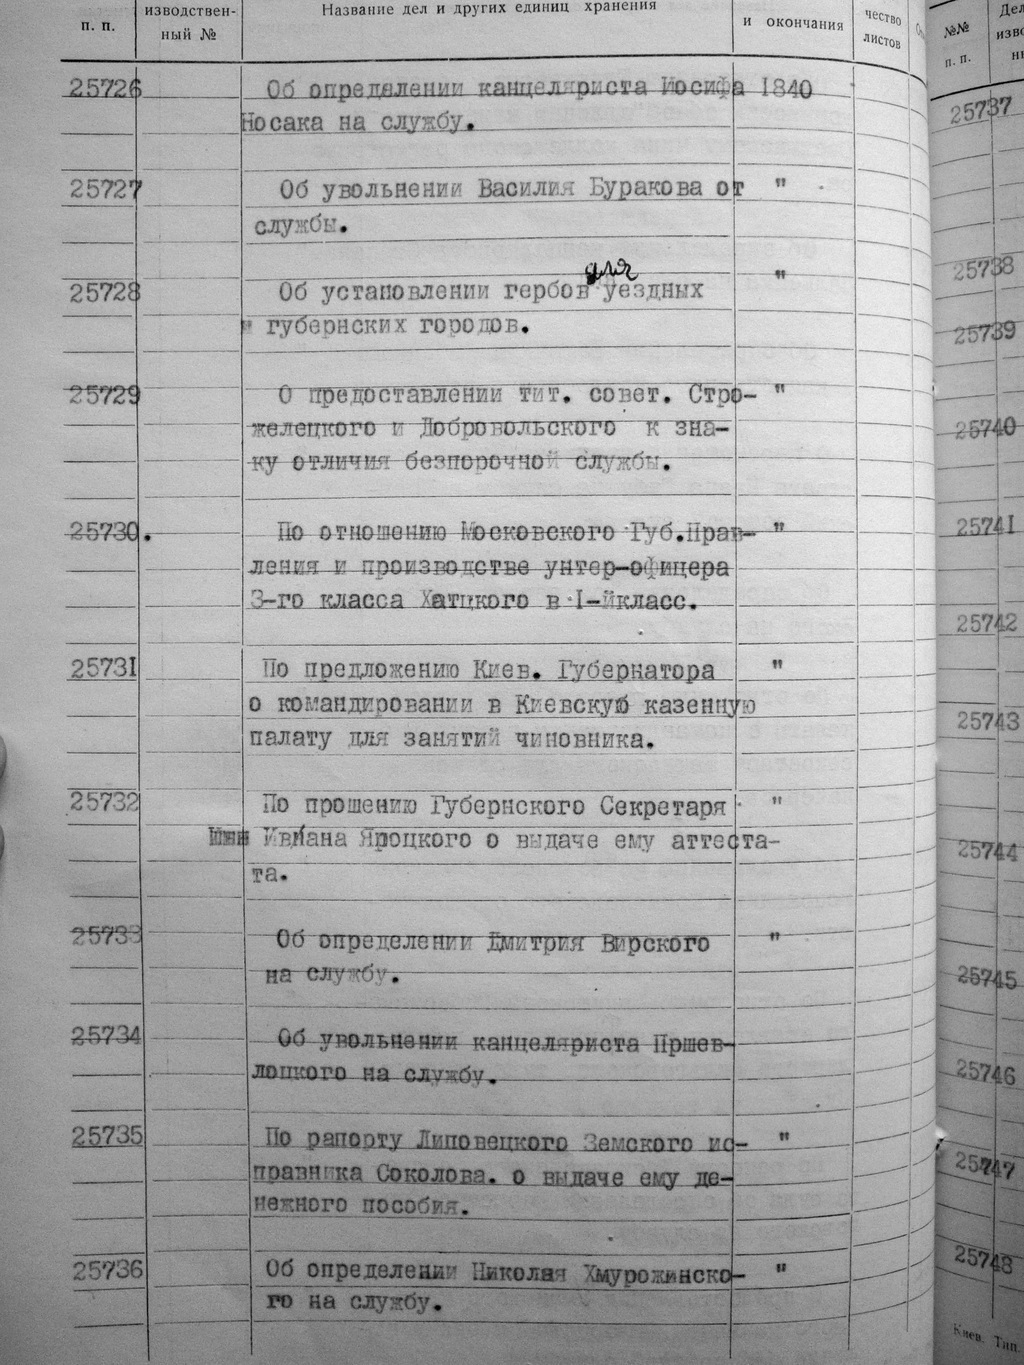 п. п.
изводствен-
ный №
Название дел и других единиц хранения
и окончания
чество
листов
25726 Об опредялении канцеляриста Иосифа 1840
Носака на службу.
25727 Об увольнении Василия Буракова от "
службы.
для
25728 Об установлении гербов уездных "
и губернских городов.
25729 О предоставлении тит. совет. Стро- "
желецкого и Добровольского к зна-
ку отличия безпорочной службы.
25730. По отношению Московского Губ.Прав- "
ления и производстве унтер-офицера
3-го класса Хатцкого в I-йкласс.
25731 По предложению Киев. Губернатора "
о командировании в Киевскую казенную
палату для занятий чиновника.
25732 По прошению Губернского Секретаря "
Ивиана Яроцкого о выдаче ему аттеста-
та.
25733 Об определении Дмитрия Вирского "
на службу.
25734 Об увольнении канцеляриста Пршев-
лоцкого на службу.
25735 По рапорту Липовецкого Земского ис- "
правника Соколова. о выдаче ему де-
нежного пособия.
25736 Об определении Николая Хмурожинско- "
го на службу.
№№
п. п.
Дел
изво
ны
25737
25738
25739
25740
25741
25742
25743
25744
25745
25746
25747
25748
Киев. Тип.